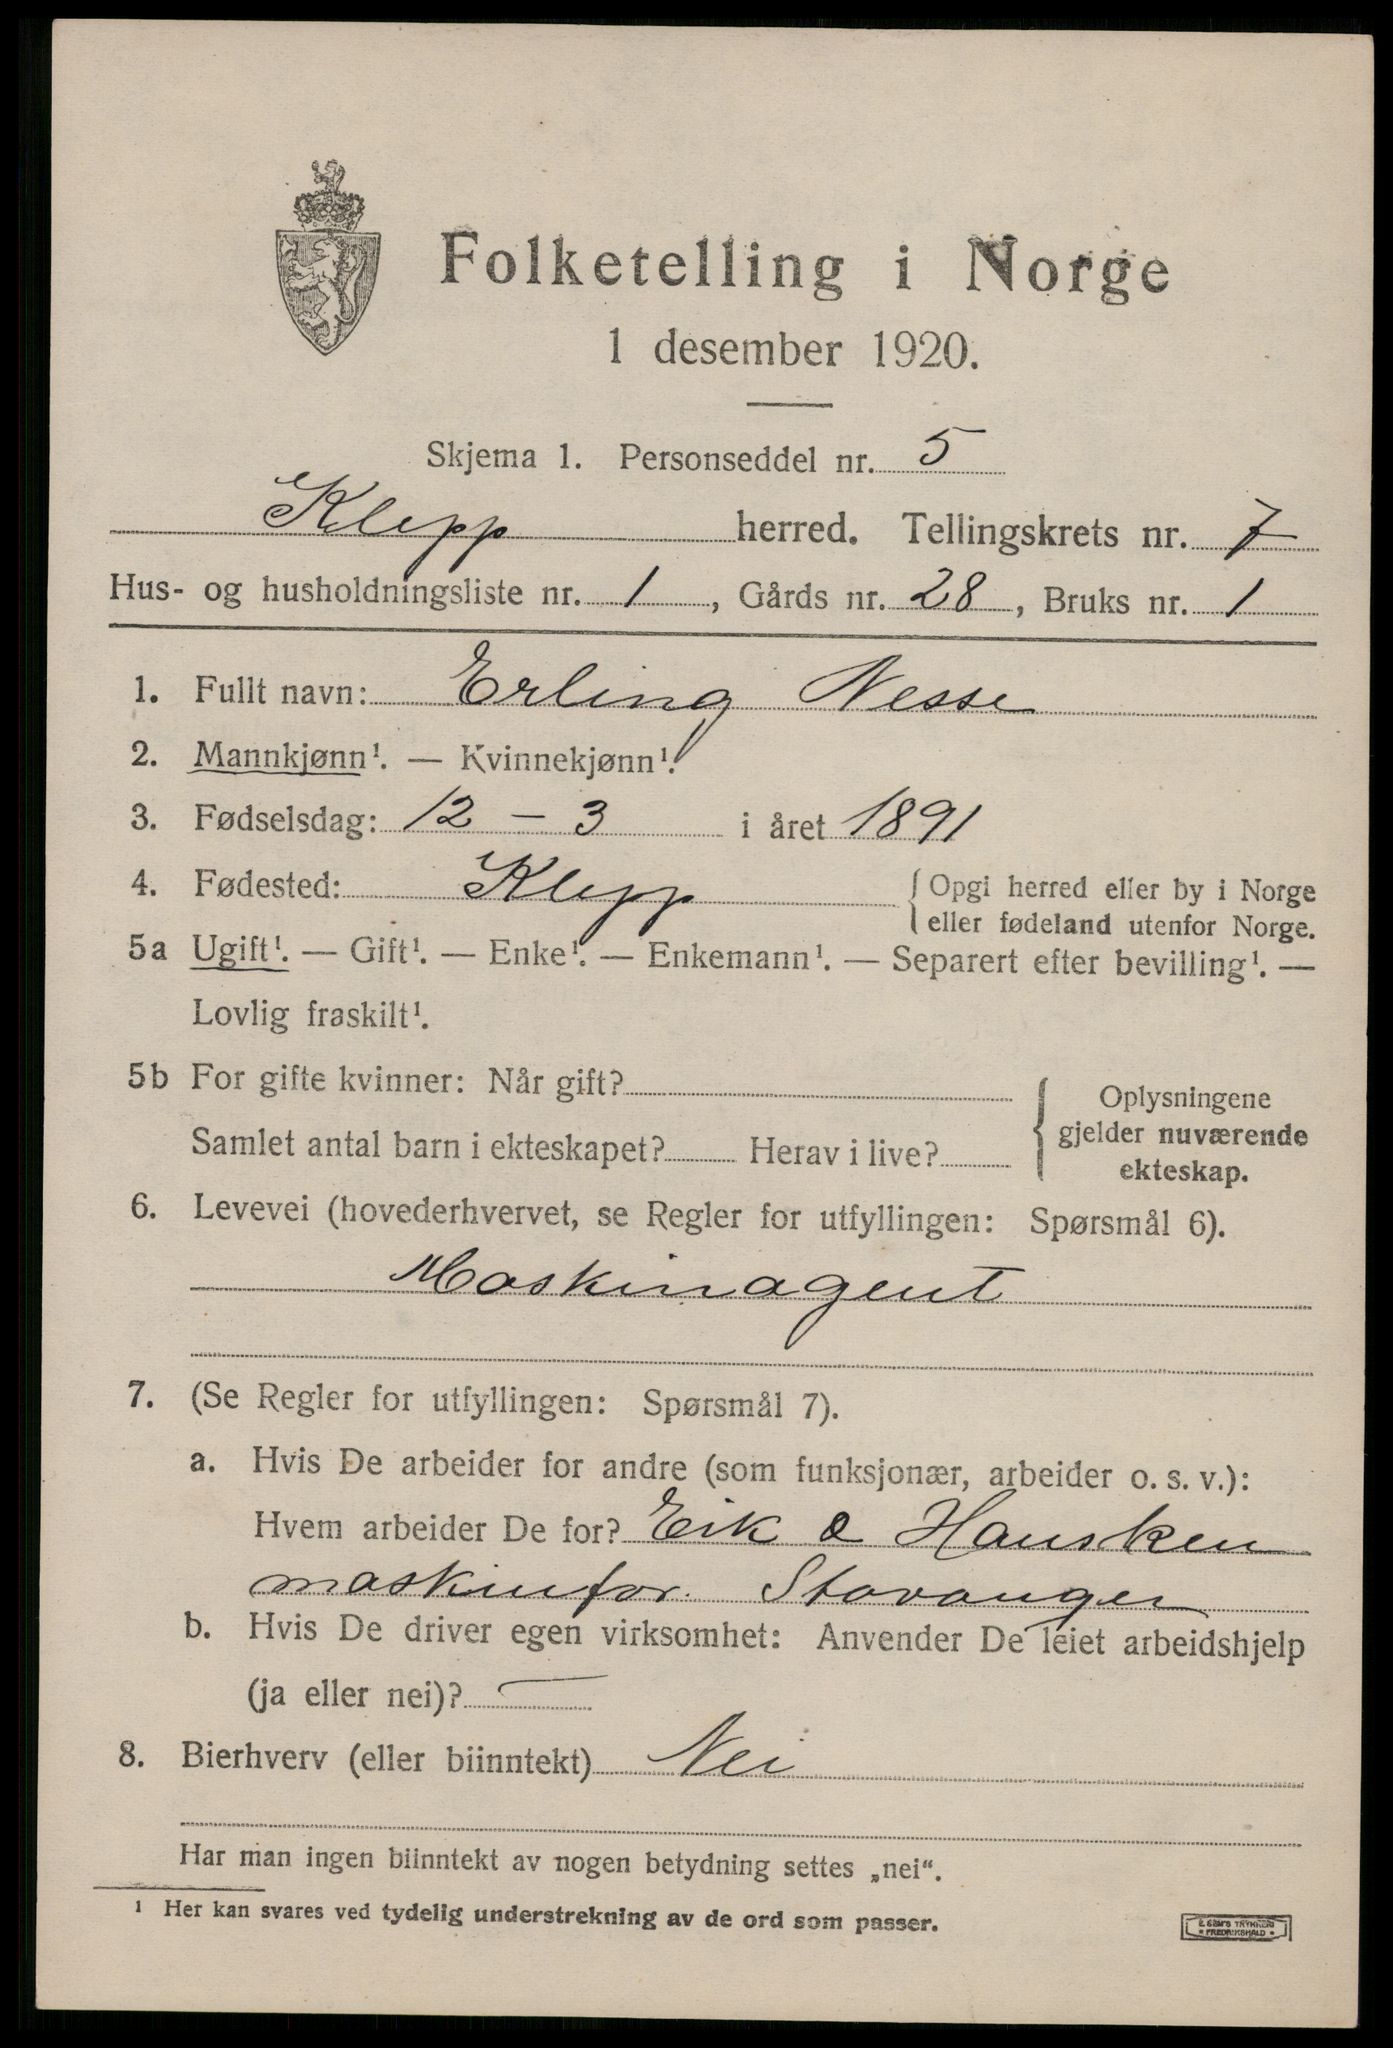 Folketelling i Norge
1 desember 1920.
Skjema 1. Personseddel nr. 5
Klepp herred. Tellingskrets nr. 7
Hus- og husholdningsliste nr. 1, Gårds nr. 28, Bruks nr. 1
1. Fullt navn: Erling Nesse
2. Mannkjønn¹. — Kvinnekjønn¹.
3. Fødselsdag: 12 – 3 i året 1891
4. Fødested: Klepp { Opgi herred eller by i Norge
eller fødeland utenfor Norge.
5a Ugift¹. — Gift¹. — Enke¹. — Enkemann¹. — Separert efter bevilling¹. —
Lovlig fraskilt¹.
5b For gifte kvinner: Når gift?
Samlet antal barn i ekteskapet? Herav i live?
{ Oplysningene
gjelder nuværende
ekteskap.
6. Levevei (hovederhvervet, se Regler for utfyllingen: Spørsmål 6).
Maskinagent
7. (Se Regler for utfyllingen: Spørsmål 7).
a. Hvis De arbeider for andre (som funksjonær, arbeider o. s. v.):
Hvem arbeider De for? Eik & Hausken
maskinfor. Stavanger
b. Hvis De driver egen virksomhet: Anvender De leiet arbeidshjelp
(ja eller nei)? —
8. Bierhverv (eller biinntekt) Nei
Har man ingen biinntekt av nogen betydning settes „nei“.
¹ Her kan svares ved tydelig understrekning av de ord som passer.
E. SEM'S TRYKKERI
• FREDRIKSHALD •